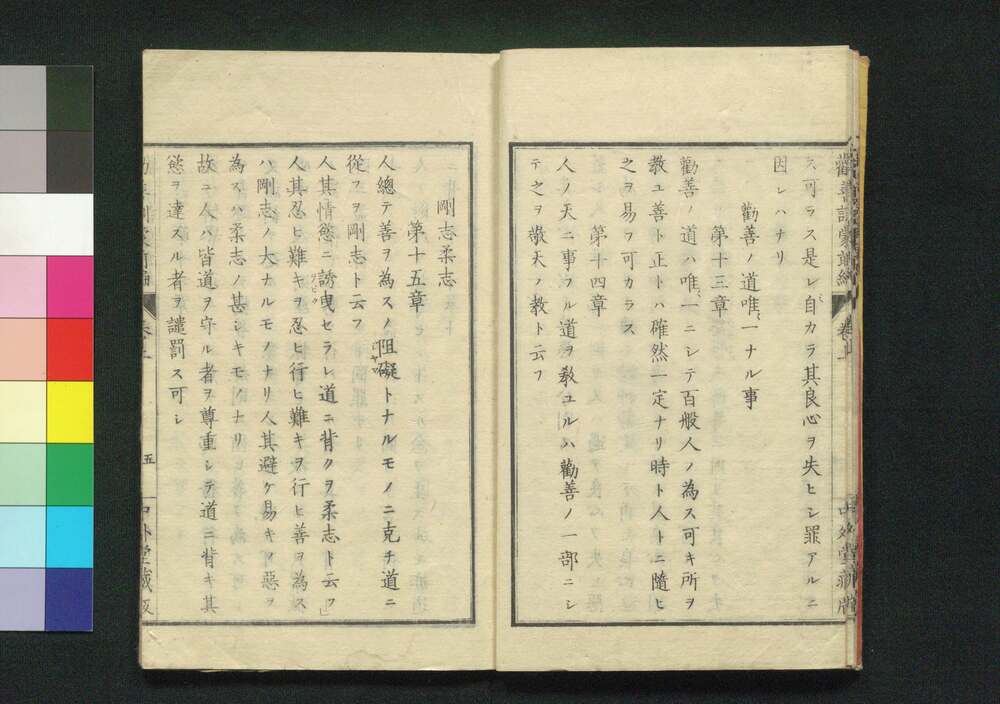 勸善訓蒙前編 卷上 中外堂藏版
ス可ラス是レ自カラ其良心ヲ失ヒシ罪アルニ
因レハナリ
勸善ノ道唯一ナル事
第十三章
勸善ノ道ハ唯一ニシテ百般人ノ為ス可キ所ヲ
教ユ善ト正トハ確然一定ナリ時ト人トニ隨ヒ
之ヲ易フ可カラス
第十四章
人ノ天ニ事フル道ヲ教ユルハ勸善ノ一部ニシ
テ之ヲ敬天ノ教ト云フ
剛志柔志
第十五章
人總テ善ヲ為スノ阻礙トナルモノニ克チ道ニ
從フヲ剛志ト云フ
人其情慾ニ誘曳セラレ道ニ背クヲ柔志ト云フ」
人其忍ヒ難キヲ忍ヒ行ヒ難キヲ行ヒ善ヲ為ス
ハ剛志ノ大ナルモノナリ人其避ケ易キノ惡ヲ
為スハ柔志ノ甚シキモノナリ
故ニ人ハ皆道ヲ守ル者ヲ尊重シテ道ニ背キ其
慾ヲ達スル者ヲ譴罰ス可シ
五 中外堂藏版